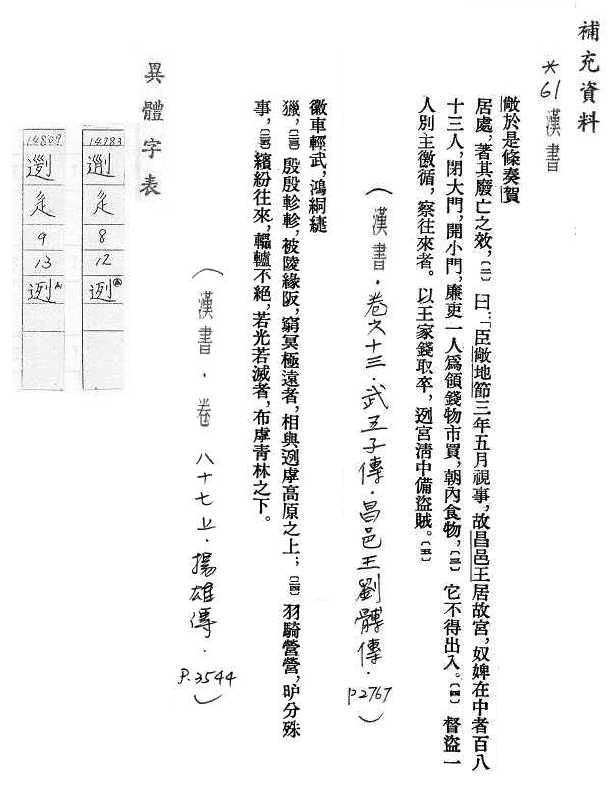 補充資料
*61 漢書
敞於是條奏賀
居處，著其廢亡之效，〔二〕曰：「臣敞地節三年五月視事，故昌邑王居故宮，奴婢在中者百八
十三人，閉大門，開小門，廉吏一人爲領錢物市買，朝內食物，〔三〕它不得出入。〔四〕督盜一
人別主徼循，察往來者。以王家錢取卒，迾宮淸中備盜賊。〔五〕
（漢書．卷六十三．武五子傳．昌邑王劉髆傳．p2767）
徽車輕武，鴻絧緁
獵，〔三〕殷殷軫軫，被陵緣阪，窮冥極遠者，相與迾虖高原之上；〔四〕羽騎營營，昈分殊
事，〔五〕繽紛往來，轠轤不絕，若光若滅者，布虖青林之下。
（漢書．卷八十七上．揚雄傳．P.3544）
異體字表
14783
辵
8
12
迾
14809
辵
9
13
迾